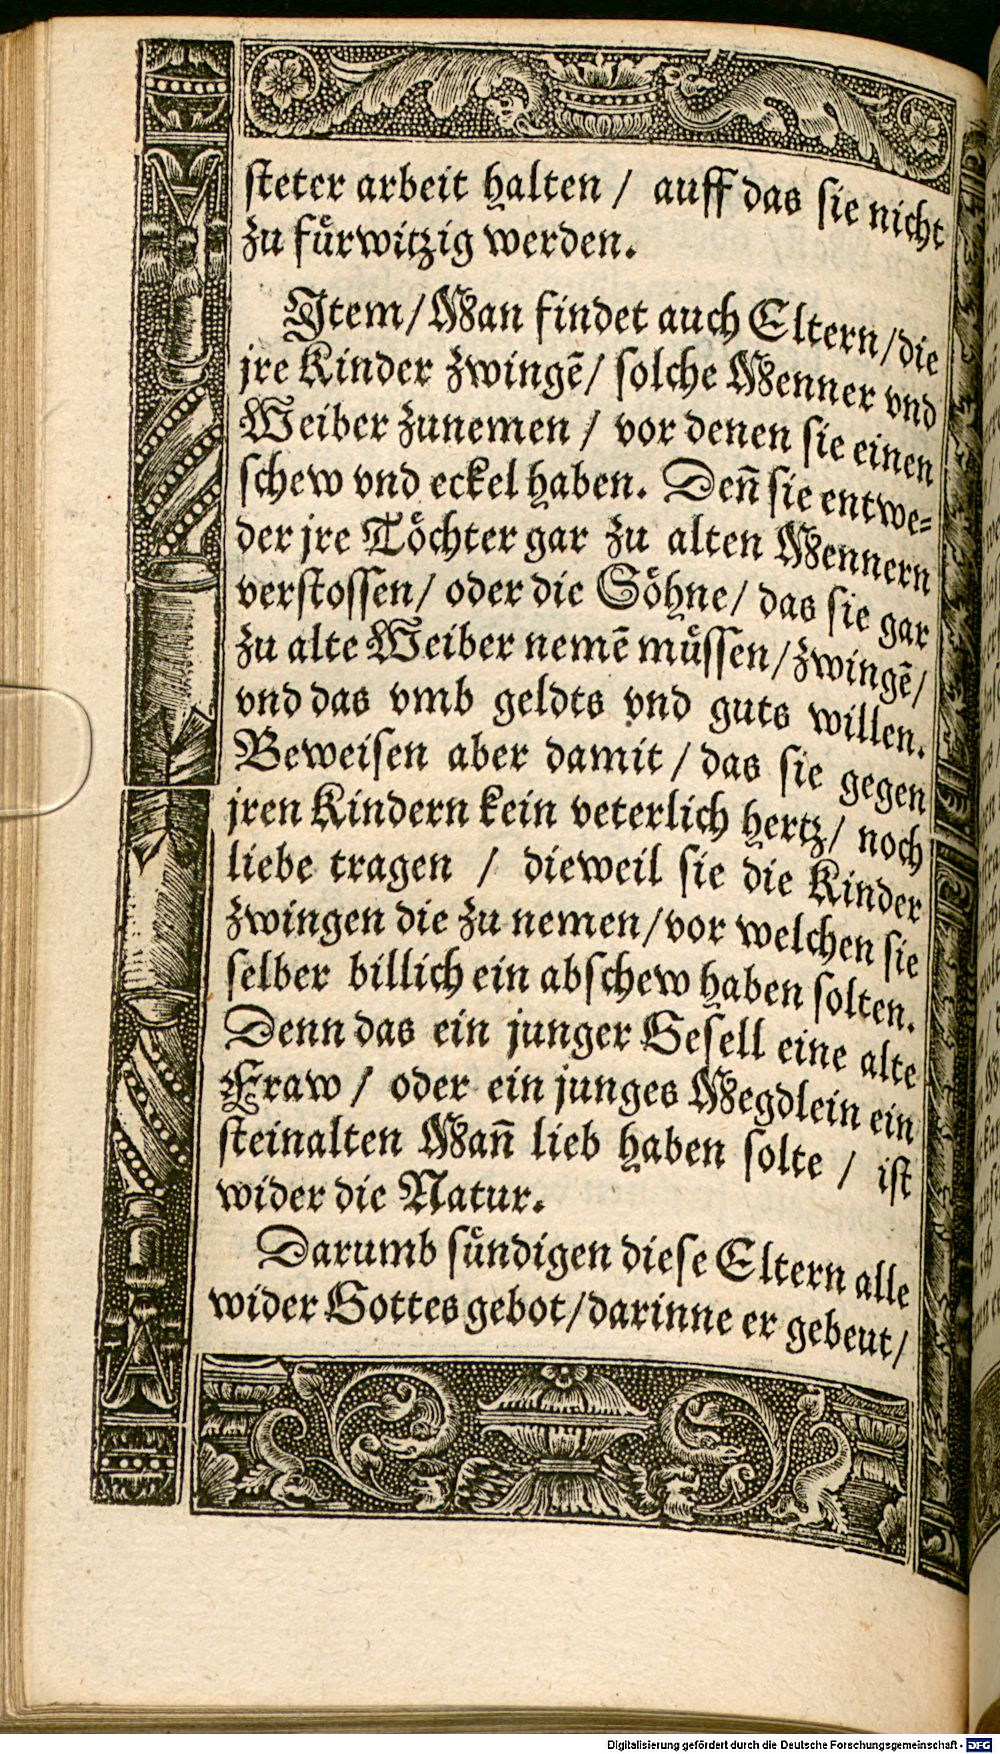 steter arbeit halten / auff das sie nicht
zu fuͤrwitzig werden.
Item / Man findet auch Eltern / die
jre Kinder zwingē / solche Menner vnd
Weiber zunemen / vor denen sie einen
schew vnd eckel haben. Deñ sie entwe-
der jre Toͤchter gar zu alten Mennern
verstossen / oder die Soͤhne / das sie gar
zu alte Weiber nemē muͤssen / zwingē /
vnd das vmb geldts vnd guts willen.
Beweisen aber damit / das sie gegen
jren Kindern kein veterlich hertz / noch
liebe tragen / dieweil sie die Kinder
zwingen die zu nemen / vor welchen sie
selber billich ein abschew haben solten.
Denn das ein junger Gesell eine alte
Fraw / oder ein junges Megdlein ein
steinalten Mañ lieb haben solte / ist
wider die Natur.
Darumb suͤndigen diese Eltern alle
wider Gottes gebot / darinne er gebeut /
Digitalisierung gefördert durch die Deutsche Forschungsgemeinschaft - DFG